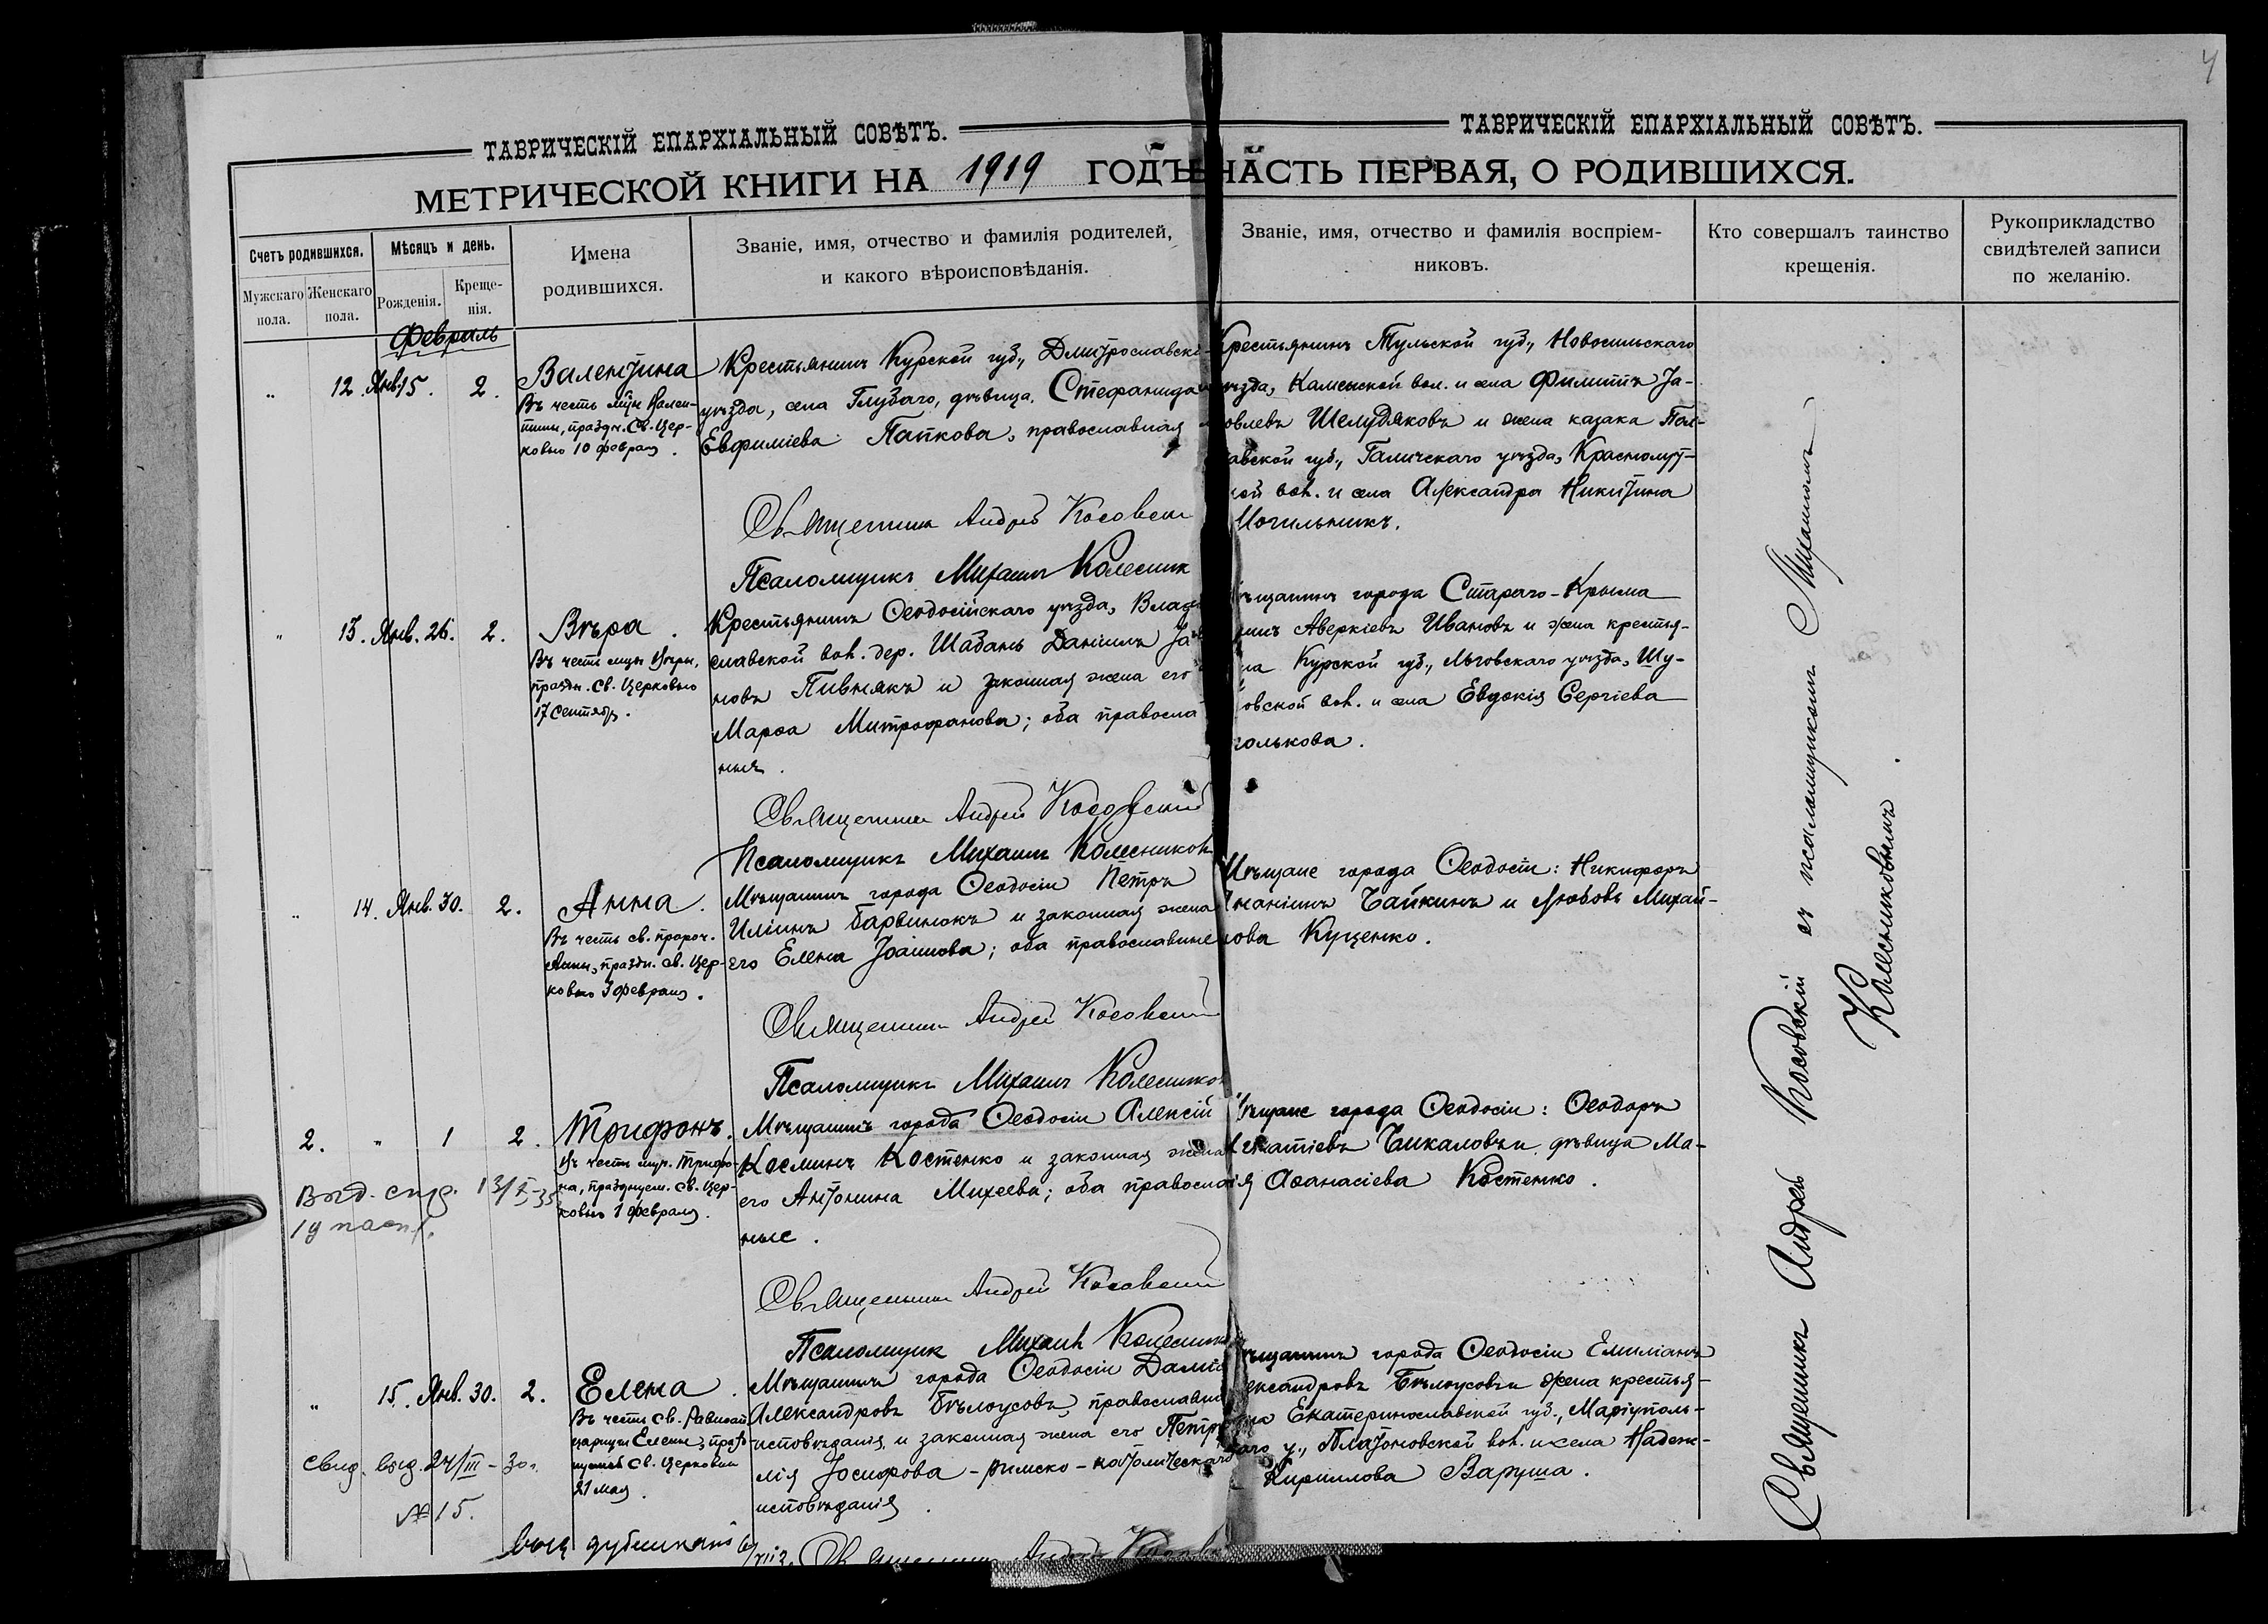 4
ТАВРИЧЕСКІЙ ЕПАРХІАЛЬНЫЙ СОВѢТЪ.
ТАВРИЧЕСКІЙ ЕПАРХІАЛЬНЫЙ СОВѢТЪ.
МЕТРИЧЕСКОЙ КНИГИ НА 1919 ГОДЪ ЧАСТЬ ПЕРВАЯ, О РОДИВШИХСЯ.
Счетъ родившихся.
Мужскаго пола.
Женскаго пола.
Мѣсяцъ и день.
Рожденія.
Креще-
нія.
Имена
родившихся.
Званіе, имя, отчество и фамилія родителей,
и какого вѣроисповѣданія.
Званіе, имя, отчество и фамилія воспріем-
никовъ.
Кто совершалъ таинство
крещенія.
Рукоприкладство
свидѣтелей записи
по желанію.
Февраль
" 12. Янв. 15. 2.
Валентина
Въ честь мцы Вален-
тины, праздн. Св. Цер-
ковью 10 февраля.
Крестьянинъ Курской губ., Дмитрославска-
уѣзда, села Глубаго, дѣвица Стефанида
Евфиміева Папкова, православная
Священникъ Андрей Косовск
Псаломщикъ Михаилъ Колесник
Крестьянинъ Тульской губ., Новосильскаго
уѣзда, Каменской вол. и села Филиппъ Іа-
ковлевъ Шелудяковъ и жена казака Пол-
тавской губ., Гадичскаго уѣзда, Краснолут-
ской вол. и села Александра Никитина
Могильникъ.
" 13. Янв. 26. 2.
Вѣра.
Въ честь мцы Вѣры,
праздн. Св. Церковью
17 Сентяб.
Крестьянинъ Ѳеодосійскаго уѣзда, Влади
славской вол. дер. Шабань Даніилъ Іа
новъ Пивнякъ и законная жена его
Марѳа Митрофанова; оба правосла
ные.
Священникъ Андрей Косовскій
Псаломщикъ Михаилъ Колесников
ѣщанинъ города Стараго-Крыма
Аверкіевъ Ивановъ и жена крестья-
на Курской губ., Льговскаго уѣзда, Шу-
овской вол. и села Евдокія Сергіева
голькова.
" 14. Янв. 30. 2.
Анна.
Въ честь св. пророч.
Анны, праздн. св. Цер-
ковью 3 февраля.
Мѣщанинъ города Ѳеодосіи Петръ
Иліинъ Барвинокъ и законная жена
его Елена Іоаннова; оба православные
Священникъ Андрей Косовскій
Псаломщикъ Михаилъ Колесников
Мѣщане города Ѳеодосіи: Никифоръ
Ананіинъ Чайкинъ и Любовь Михай-
лова Куценко.
2. " 1 2.
Трифонъ.
Въ честь муч. Трифо-
на, празднуем. св. Цер-
ковью 1 февраля.
Мѣщанинъ города Ѳеодосіи Алексій
Косминъ Костенко и законная жена
его Антонина Михеева; оба правосла
ные.
Священникъ Андрей Косовскій
Псаломщик Михаил Колесник
Мѣщане города Ѳеодосіи: Ѳеодоръ
Игнатіевъ Чикаловъ и дѣвица Ма-
рія Аѳанасіева Костенко.
" 15. Янв. 30. 2.
Елена.
Въ честь св. Равноап.
царицы Елены, празд-
нуемой св. Церковью
21 мая.
Свид. выд. 24/III-30 г.
№ 15.
Мѣщанинъ города Ѳеодосіи Даміа
Александровъ Бѣлоусовъ, православна
исповѣданія, и законная жена его Петро
лія Іосифова - римско-католическаго
исповѣданія.
ѣщанинъ города Ѳеодосіи Емиліанъ
лександровъ Бѣлоусовъ и жена крестья-
нина Екатеринославской губ., Маріуполь-
скаго у., Платоновской вол. и села Надеж-
Кириллова Варуша.
Священникъ Андрей Косовскій съ псаломщикомъ Михаиломъ
Колесниковымъ.